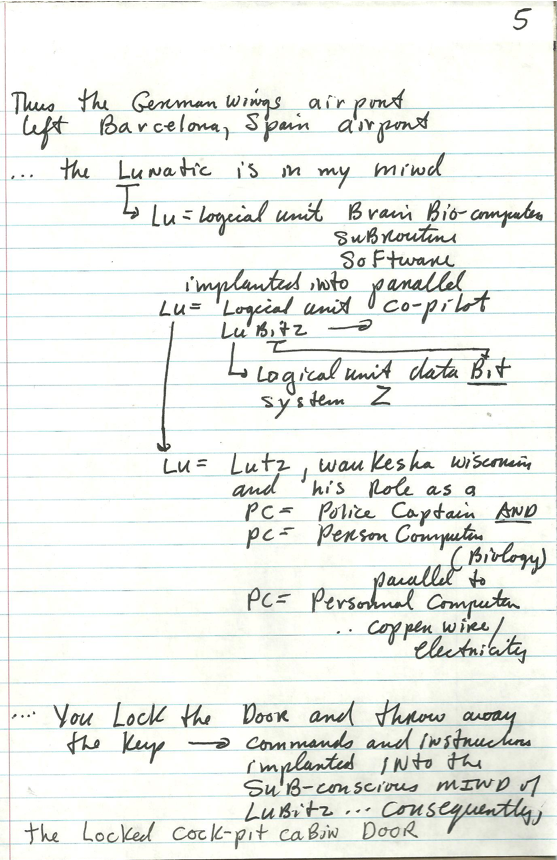 5
Thus the Germanwings airport
left Barcelona, Spain airport
... the Lunatic is in my mind
Lu = logical unit Brain Bio-computer
SuBRoutine
SoFtware
implanted into parallel
Lu = Logical unit co-pilot
LuBitz →
Logical unit data Bit
system Z
Lu = Lutz, waukesha wisconsin
and his Role as a
PC = Police Captain AND
PC = Person Computer
(Biology)
parallel to
PC = Personnal Computer
.. copper wire/
electricity
.... You Lock the Door and throw away
the Key → commands and instructions
implanted INto the
SuB-conscious MIND of
LuBitz ... Consequently,
the Locked cock-pit caBin DOOR